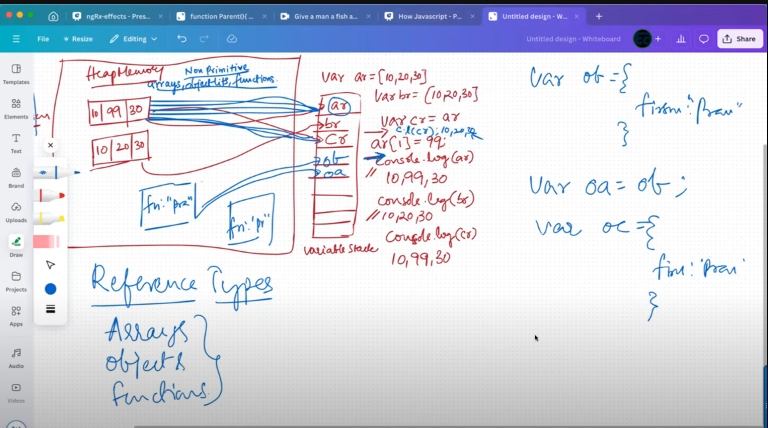 ngRx-effects - Pres...
function Parent(){ ...
Give a man a fish a...
How Javascript - P...
Untitled design - W...
File
Resize
Editing
Untitled design - Whiteboard
Share
Templates
Elements
Text
Brand
Uploads
Draw
Projects
Apps
Audio
Videos
Heap Memory
Non Primitive
arrays, object lits, functions.
10 | 99 | 30
10 | 20 | 30
fn: "pra"
fn: "pr"
ar
br
cr
ob
oa
variable stack
var ar = [10,20,30]
var br = [10,20,30]
var cr = ar
c.l(cr); 10,20,30
ar[1] = 99;
console.log(ar)
// 10,99,30
console.log(br)
// 10,20,30
console.log(cr)
10,99,30
Reference Types
Arrays
objects
functions
var ob = {
}
var oa = ob ;
var oc = {
}